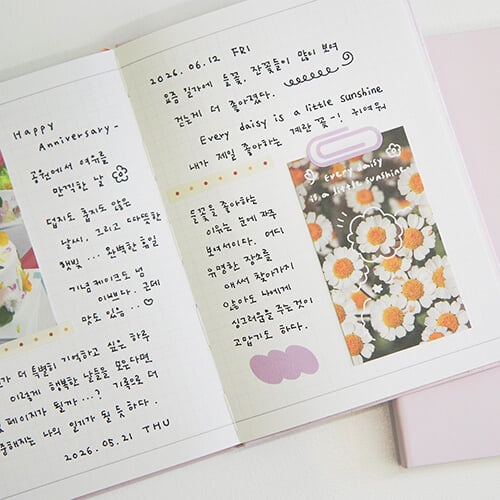 Happy
Anniversary-
공원에서 여유를
만끽한 날
덥지도 춥지도 않은
날씨, 그리고 따뜻한
햇빛... 완벽한 휴일
기념케이크도 넘
이쁘다. 근데
맛도 있음..
더 특별히 기억하고 싶은 하루
이렇게 행복한 날들을 모은다면
페이지가 될까...? 기록으로 더
해지는 나의 일기가 될 듯 하다.
2026.05.21 THU
2026.06.12 FRI
요즘 길가에 들꽃, 잔꽃들이 많이 보여
걷는게 더 좋아졌다.
Every daisy is a little sunshine
내가 제일 좋아하는 계란 꽃-! 귀여워
들꽃을 좋아하는
이유는 눈에 자주
보여서이다. 어디
유명한 장소를
애써 찾아가지
않아도 나에게
싱그러움을 주는것이
고맙기도 하다.
Every daisy
is a little sunshine